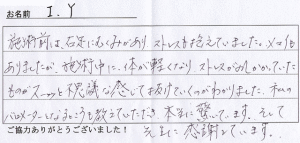 お名前 I.Y
施術前は、右足にむくみがあり ストレスも抱えていました。メマイも
ありましたが、施術中に、体が軽くなり ストレスがひっかかっていた
ものがスーッと不思議な感じで抜けていくのがわかりました。私の
バロメーターになるところも教えていただき、本当に驚いてます。そして
先生に感謝しています。
ご協力ありがとうございました!